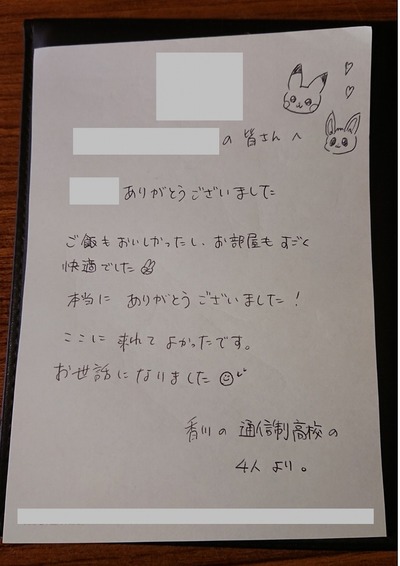 の皆さんへ
ありがとうございました
ご飯もおいしかったし、お部屋もすごく
快適でした✌
本当に ありがとうございました!
ここに 来れて よかったです。
お世話になりました☺
香川の 通信制高校の
4人 より。